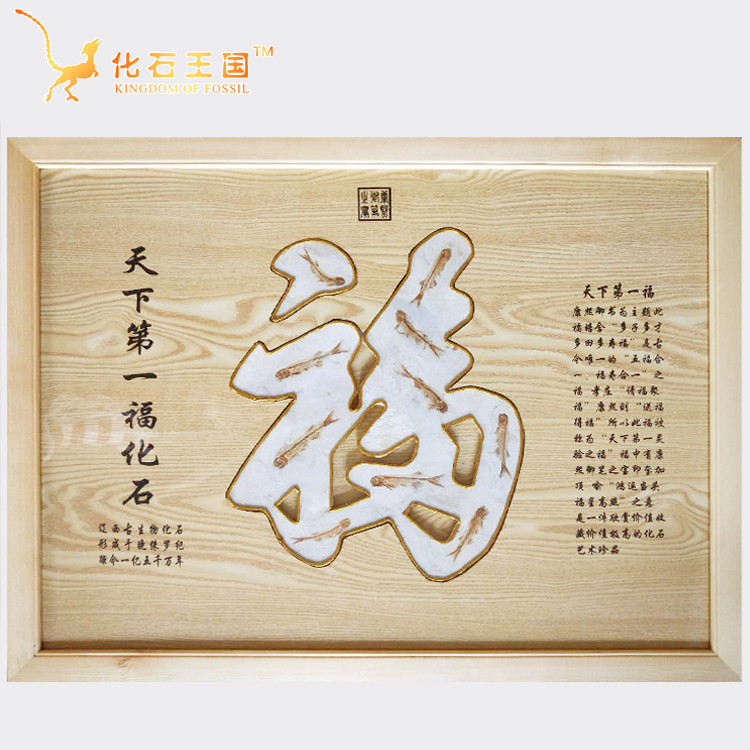 化石王国™
KINGDOM OF FOSSIL
康熙御笔之宝
天下第一福化石
辽西古生物化石
形成于晚侏罗纪
距今一亿五千万年
福
天下第一福
康熙御书为主题此
福语含“多子多才
多田多寿福”是古
今唯一的“五福合
一，福寿合一”之
福 孝庄“请福聚
福”康熙则“送福
得福”所以此福被
称为“天下第一灵
验之福”福中有康
熙御笔之宝印玺加
顶 喻“鸿运当头
福星高照”之意
是一件欣赏价值收
藏价值极高的化石
艺术珍品